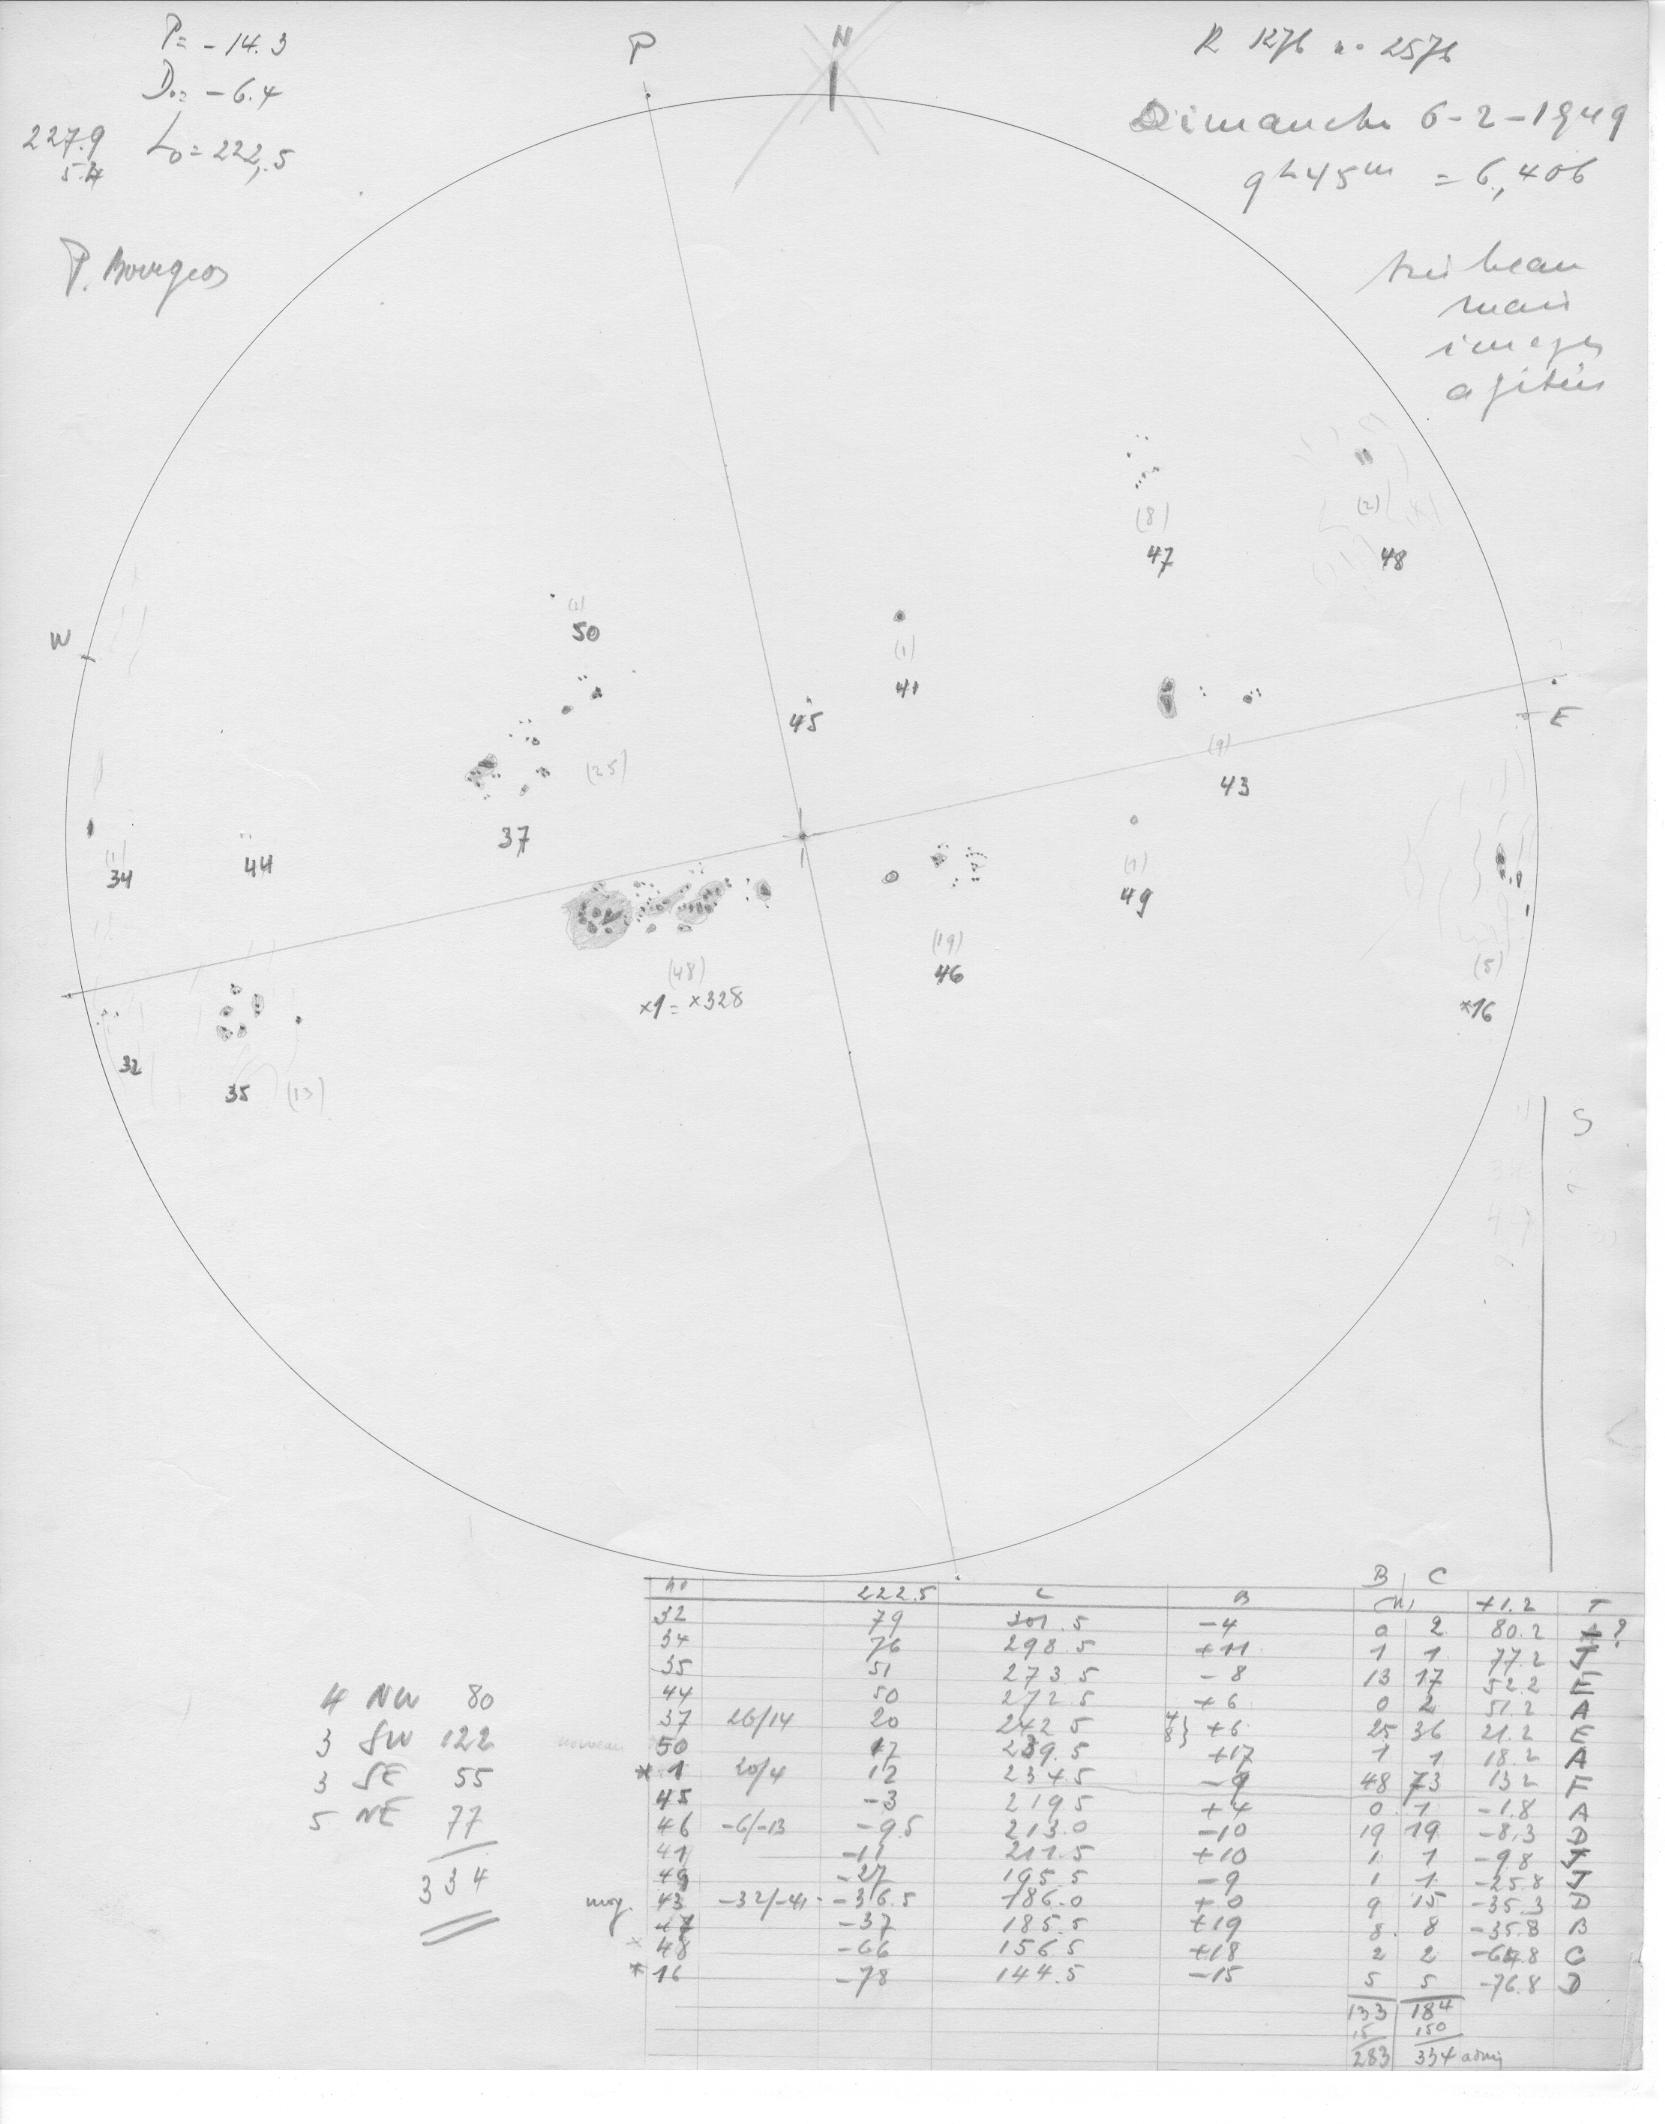 P = -14.3
D₀ = -6.4
227.9 L₀ = 222,5
5.4
P. Bourgeois
P
N
R 1276 n° 2576
Dimanche 6-2-1949
9h45m = 6,406
très beau
mais
images
agitées
(8)
47
(2)
48
W
(1)
50
(1)
41
45
E
(25)
37
(9)
43
(1)
34
44
(1)
49
(19)
46
(48)
*1 = *328
(5)
*16
32
35 (13)
S
4 NW 80
3 SW 122
3 SE 55
5 NE 77
334
B C
no 222.5 L B +1.2 T
32 79 301.5 -4 0 2 80.2 ?
34 76 298.5 +11 1 1 77.2 J
35 51 273.5 -8 13 17 52.2 E
44 50 272.5 +6 0 2 51.2 A
37 26/14 20 242.5 4 8 } +6 25 36 21.2 E
nouveau 50 17 239.5 +17 1 1 18.2 A
* 1 20/4 12 234.5 -9 48 73 13.2 F
45 -3 219.5 +4 0 1 -1.8 A
46 -6/-13 -9.5 213.0 -10 19 19 -8.3 D
41 -11 211.5 +10 1 1 -9.8 J
49 -27 195.5 -9 1 1 -25.8 J
moy. 43 -32/-41 -36.5 186.0 +0 9 15 -35.3 D
47 -37 185.5 +19 8 8 -35.8 B
48 -66 156.5 +18 2 2 -64.8 C
* 16 -78 144.5 -15 5 5 -76.8 D
133 184
15 150
283 334